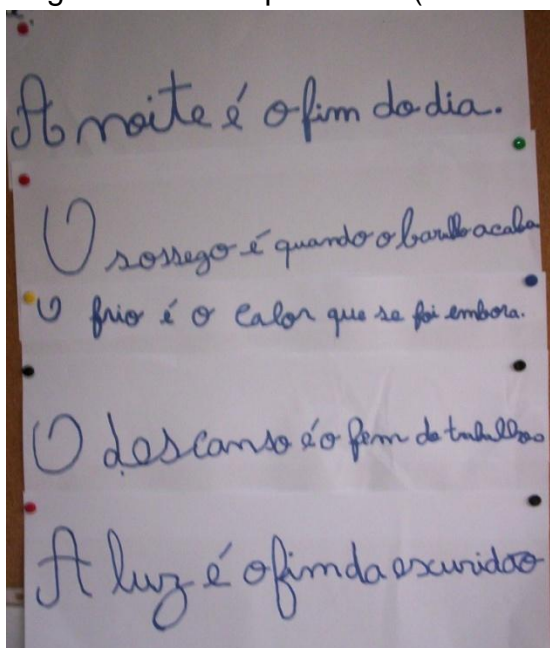 A noite é o fim do dia.
O sossego é quando o barulho acaba
O frio é o calor que se foi embora.
O descanso é o fim do trabalho
A luz é o fim da escuridão